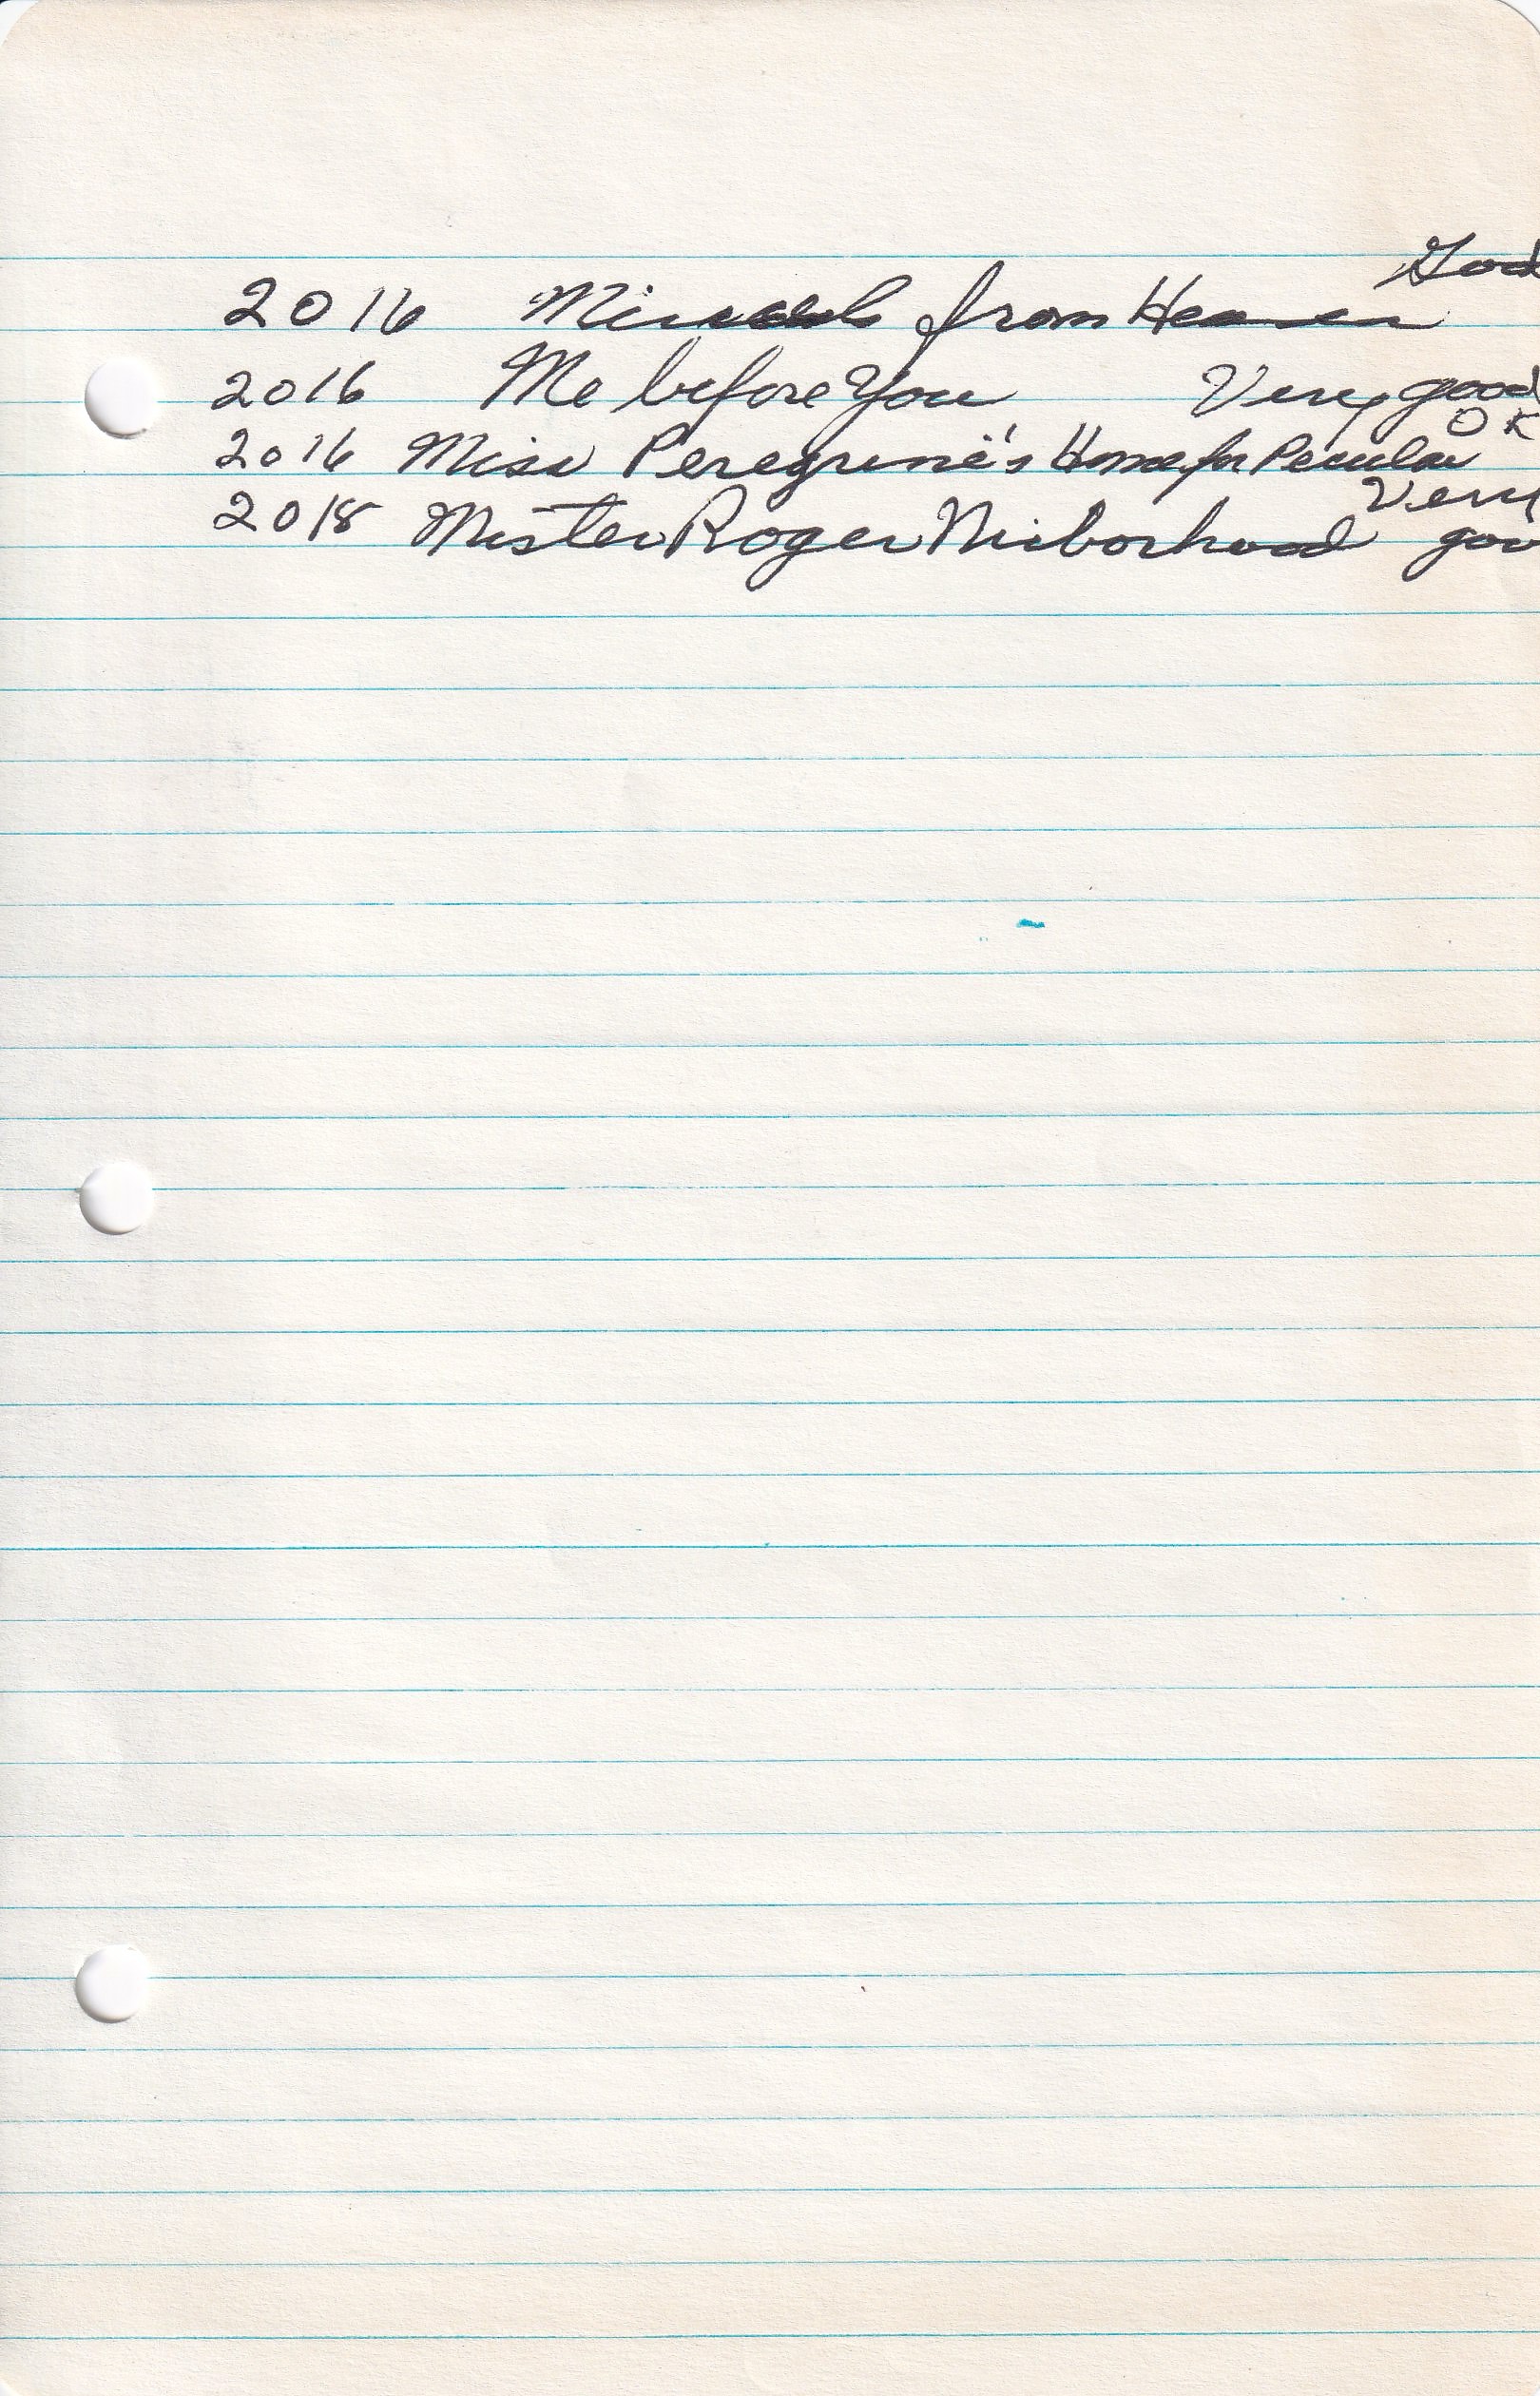 Good
2016 Miracles from Heaven
2016 Me before You Very good
OK
2016 Miss Peregrine's Home for Peculiar
Very
2018 Mister Roger Nieborhood good